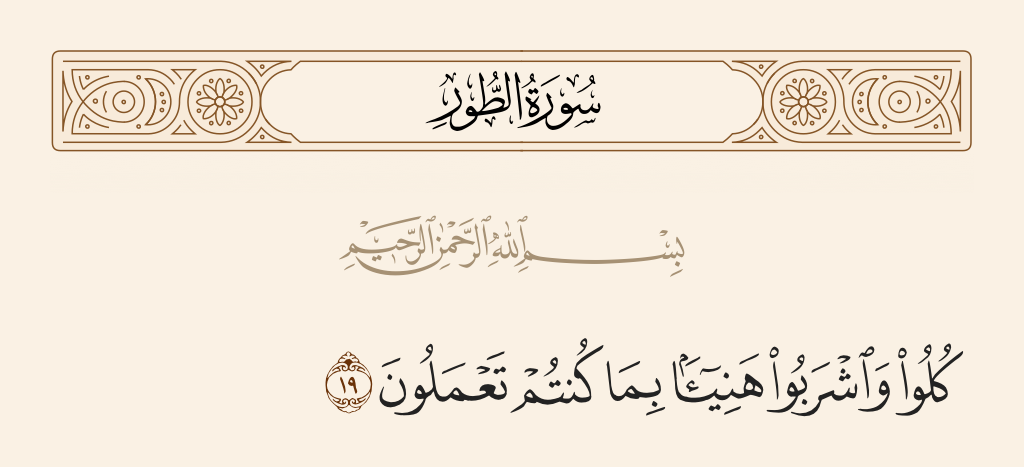 سُورَةُ الطُّورِ
بِسْمِ ٱللَّهِ ٱلرَّحْمَٰنِ ٱلرَّحِيمِ
كُلُوا۟ وَٱشْرَبُوا۟ هَنِيٓـَٔۢا بِمَا كُنتُمْ تَعْمَلُونَ ١٩